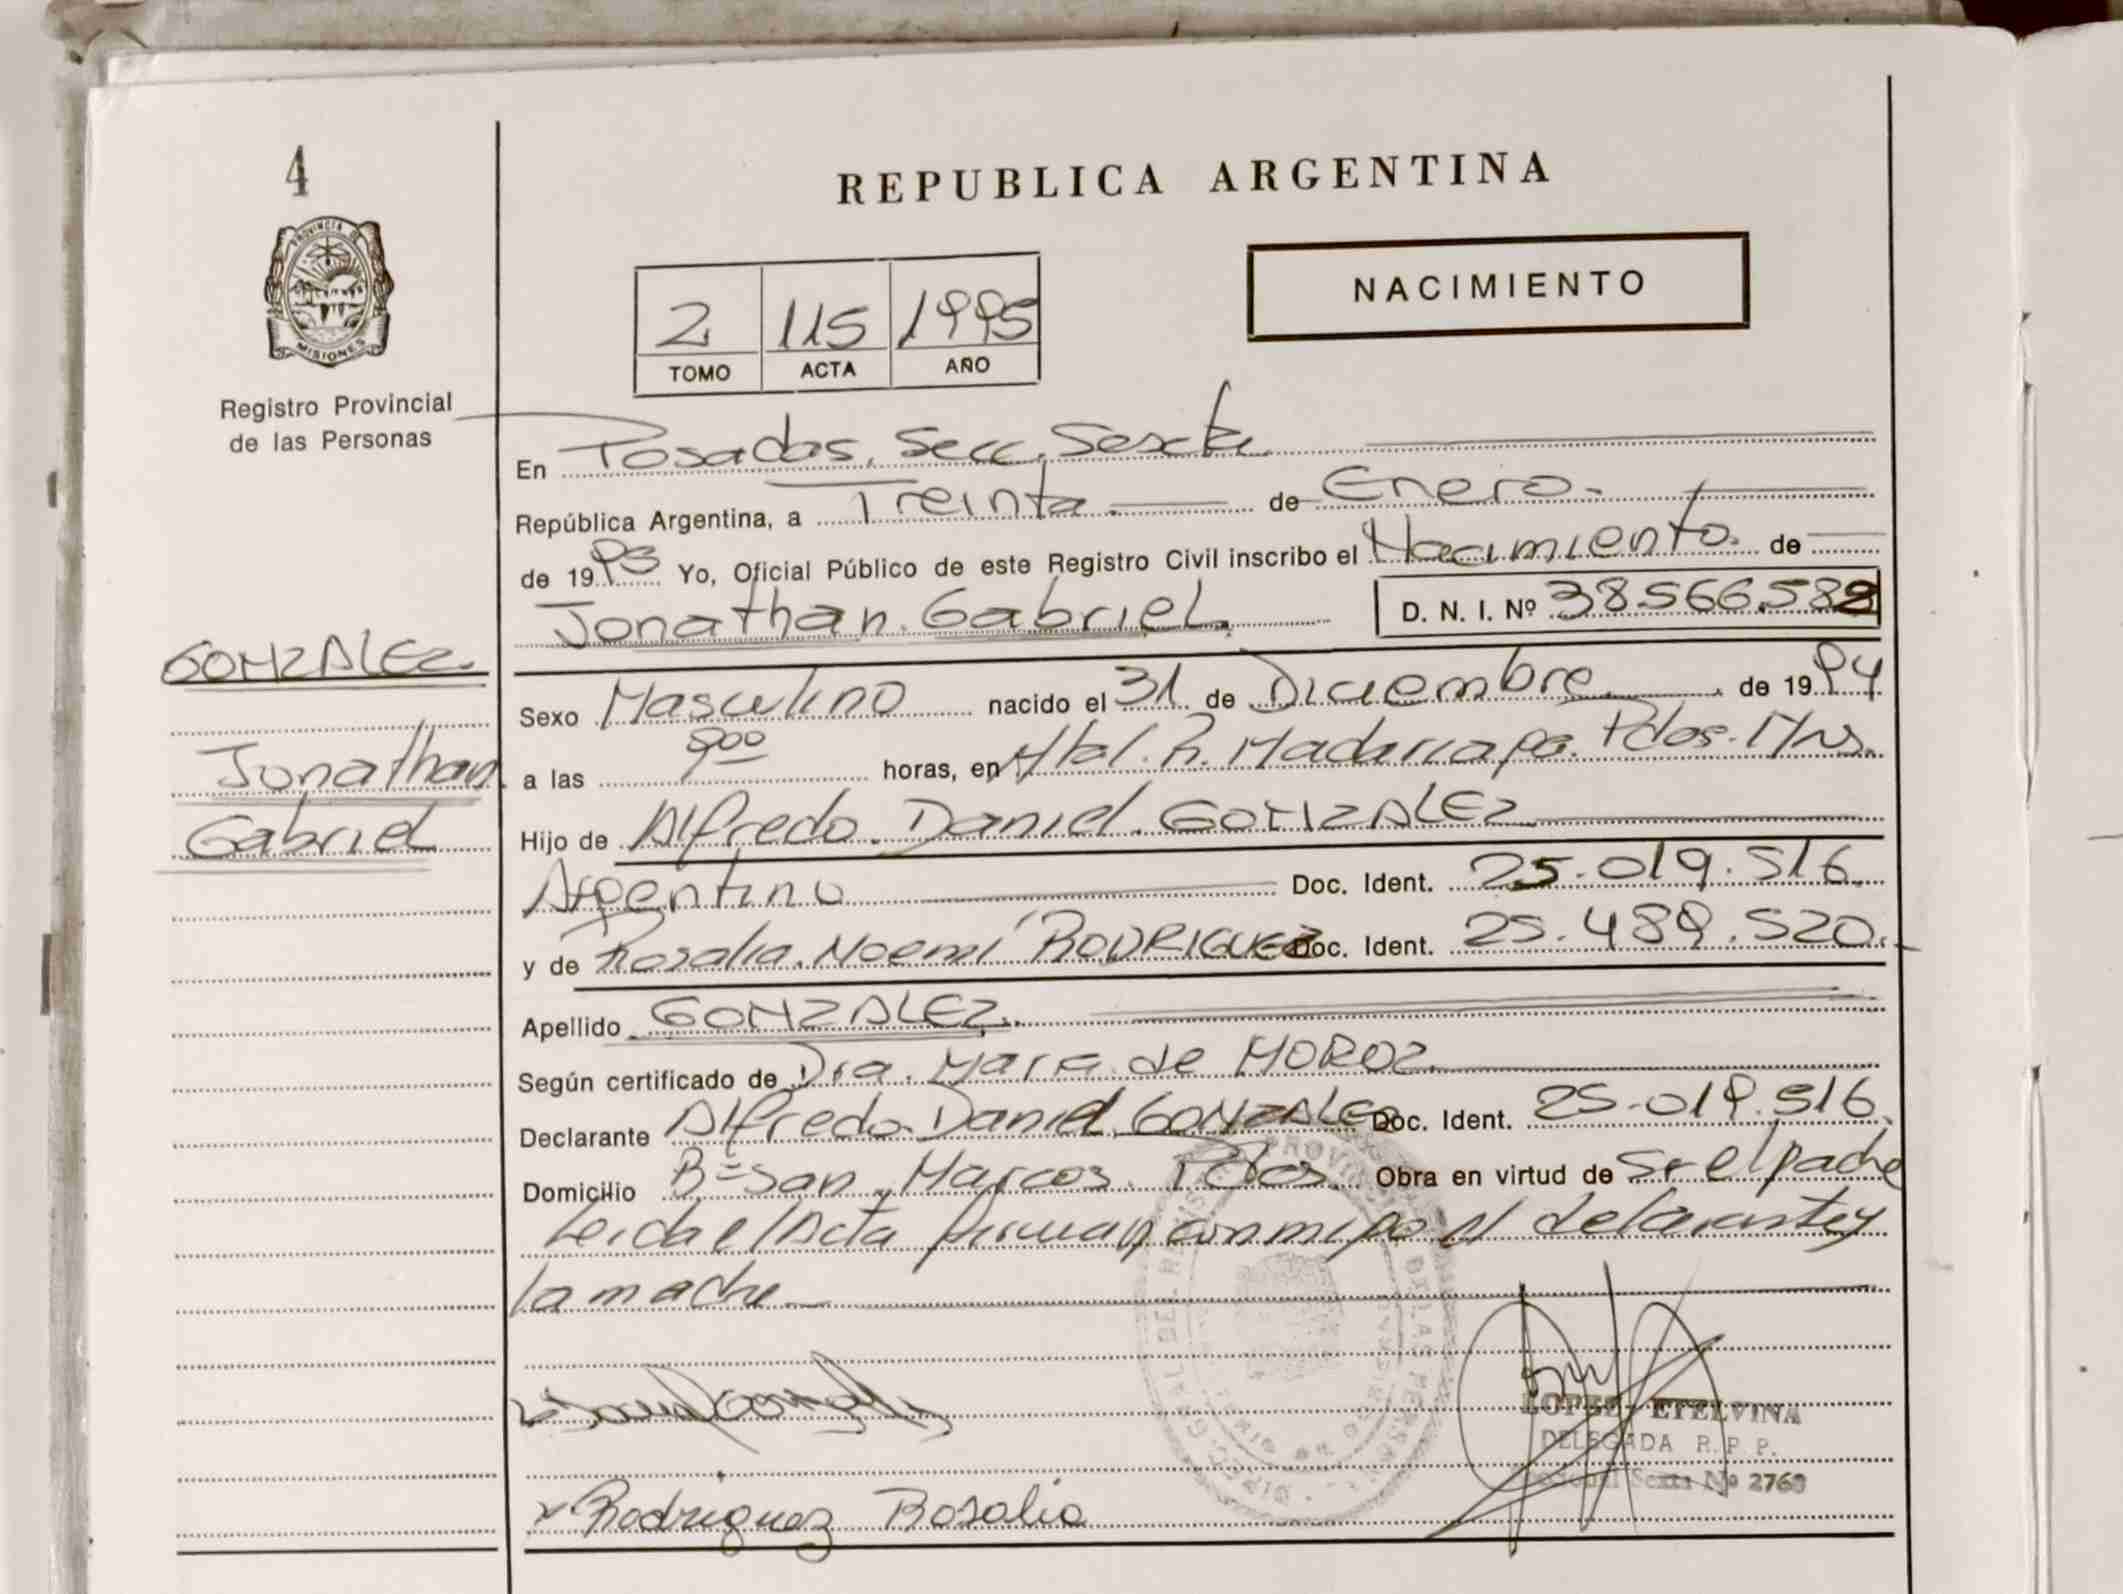 4
REPUBLICA ARGENTINA
PROVINCIA DE
MISIONES
Registro Provincial
de las Personas
NACIMIENTO
2 115 1995
TOMO ACTA AÑO
En Posadas, Secc. Sexta
República Argentina, a Treinta de Enero.
de 1995 Yo, Oficial Público de este Registro Civil inscribo el Nacimiento de
Jonathan Gabriel D. N. I. Nº 38.566.582
GONZALEZ
Jonathan
Gabriel
Sexo Masculino nacido el 31 de Diciembre de 1994
a las 9ºº horas, en Htal. R. Madariaga. Pdas. Mns.
Hijo de Alfredo Daniel GONZALEZ
Argentino Doc. Ident. 25.019.516
y de Rosalia Noemí RODRIGUEZ Doc. Ident. 25.489.520
Apellido GONZALEZ
Según certificado de Dra. Mara de MOROZ
Declarante Alfredo Daniel GONZALEZ Doc. Ident. 25.019.516
Domicilio Bº San Marcos. Pdas. Obra en virtud de Ser el padre
Leida el Acta firman conmigo el declarante y
la madre
Rodriguez Rosalia
LOPEZ ETELVINA
DELEGADA R. P. P.
Sexta Nº 2760